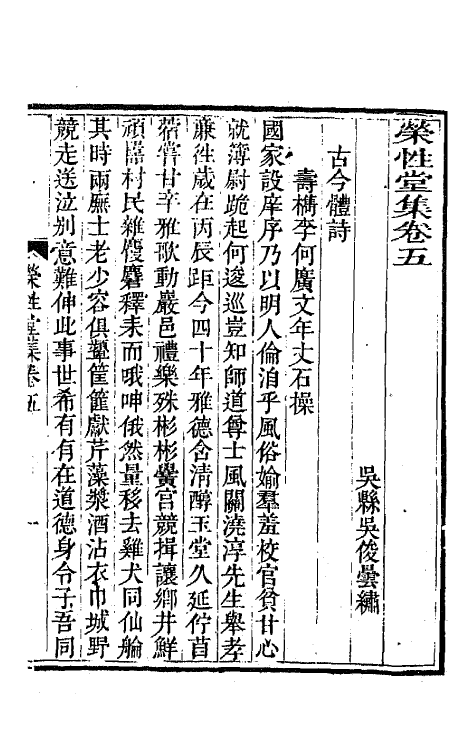 榮性堂集卷五
吳縣吳俊曇繡
古今體詩
壽檇李何廣文年丈石操
國家設庠序乃以明人倫洎乎風俗媮羣羞校官貧甘心
就簿尉跪起何逡巡豈知師道尊士風關澆淳先生舉孝
廉徃歲在丙辰距今四十年雅德含清醇玉堂久延佇苜
蓿嘗甘辛雅歌動巖邑禮樂殊彬彬黌官競揖讓鄉井鮮
頑嚚村民雜
釋耒而哦呻俄然量移去雞犬同仙艑
其時兩廡士老少容俱顰筐篚獻芹藻漿酒沾衣巾城野
競走送泣別意難伸此事世希有有在道德身令子吾同
榮性堂集卷五